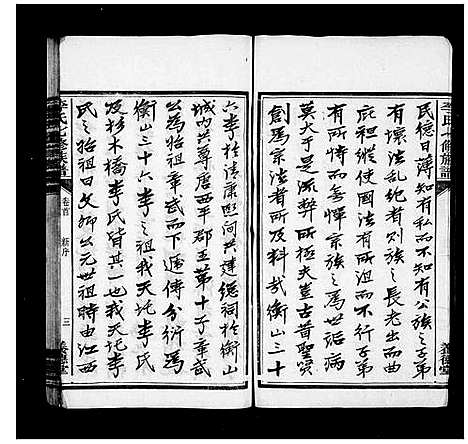 李氏七修族譜
民德日薄知有私而不知有公族之子弟
有壞法乱紀者則族之長老出而曲
庇袒縱使國法有所沮而不行子弟
有所恃而無憚宗族之為世詬病
莫大于是流弊所極夫豈古昔聖賢
創爲宗法者所及料哉衡山三十
六李於清康熙間共建總祠於衡山
城內共尊唐西平郡王第十子章武
公爲始祖章武而下遞傳分衍爲
衡山三十六李之祖我天圫李氏
及杉木橋李氏皆其一也我天圫李
氏之始祖曰文卿公元世祖時由江西
李氏七修族譜
卷首
新序
三